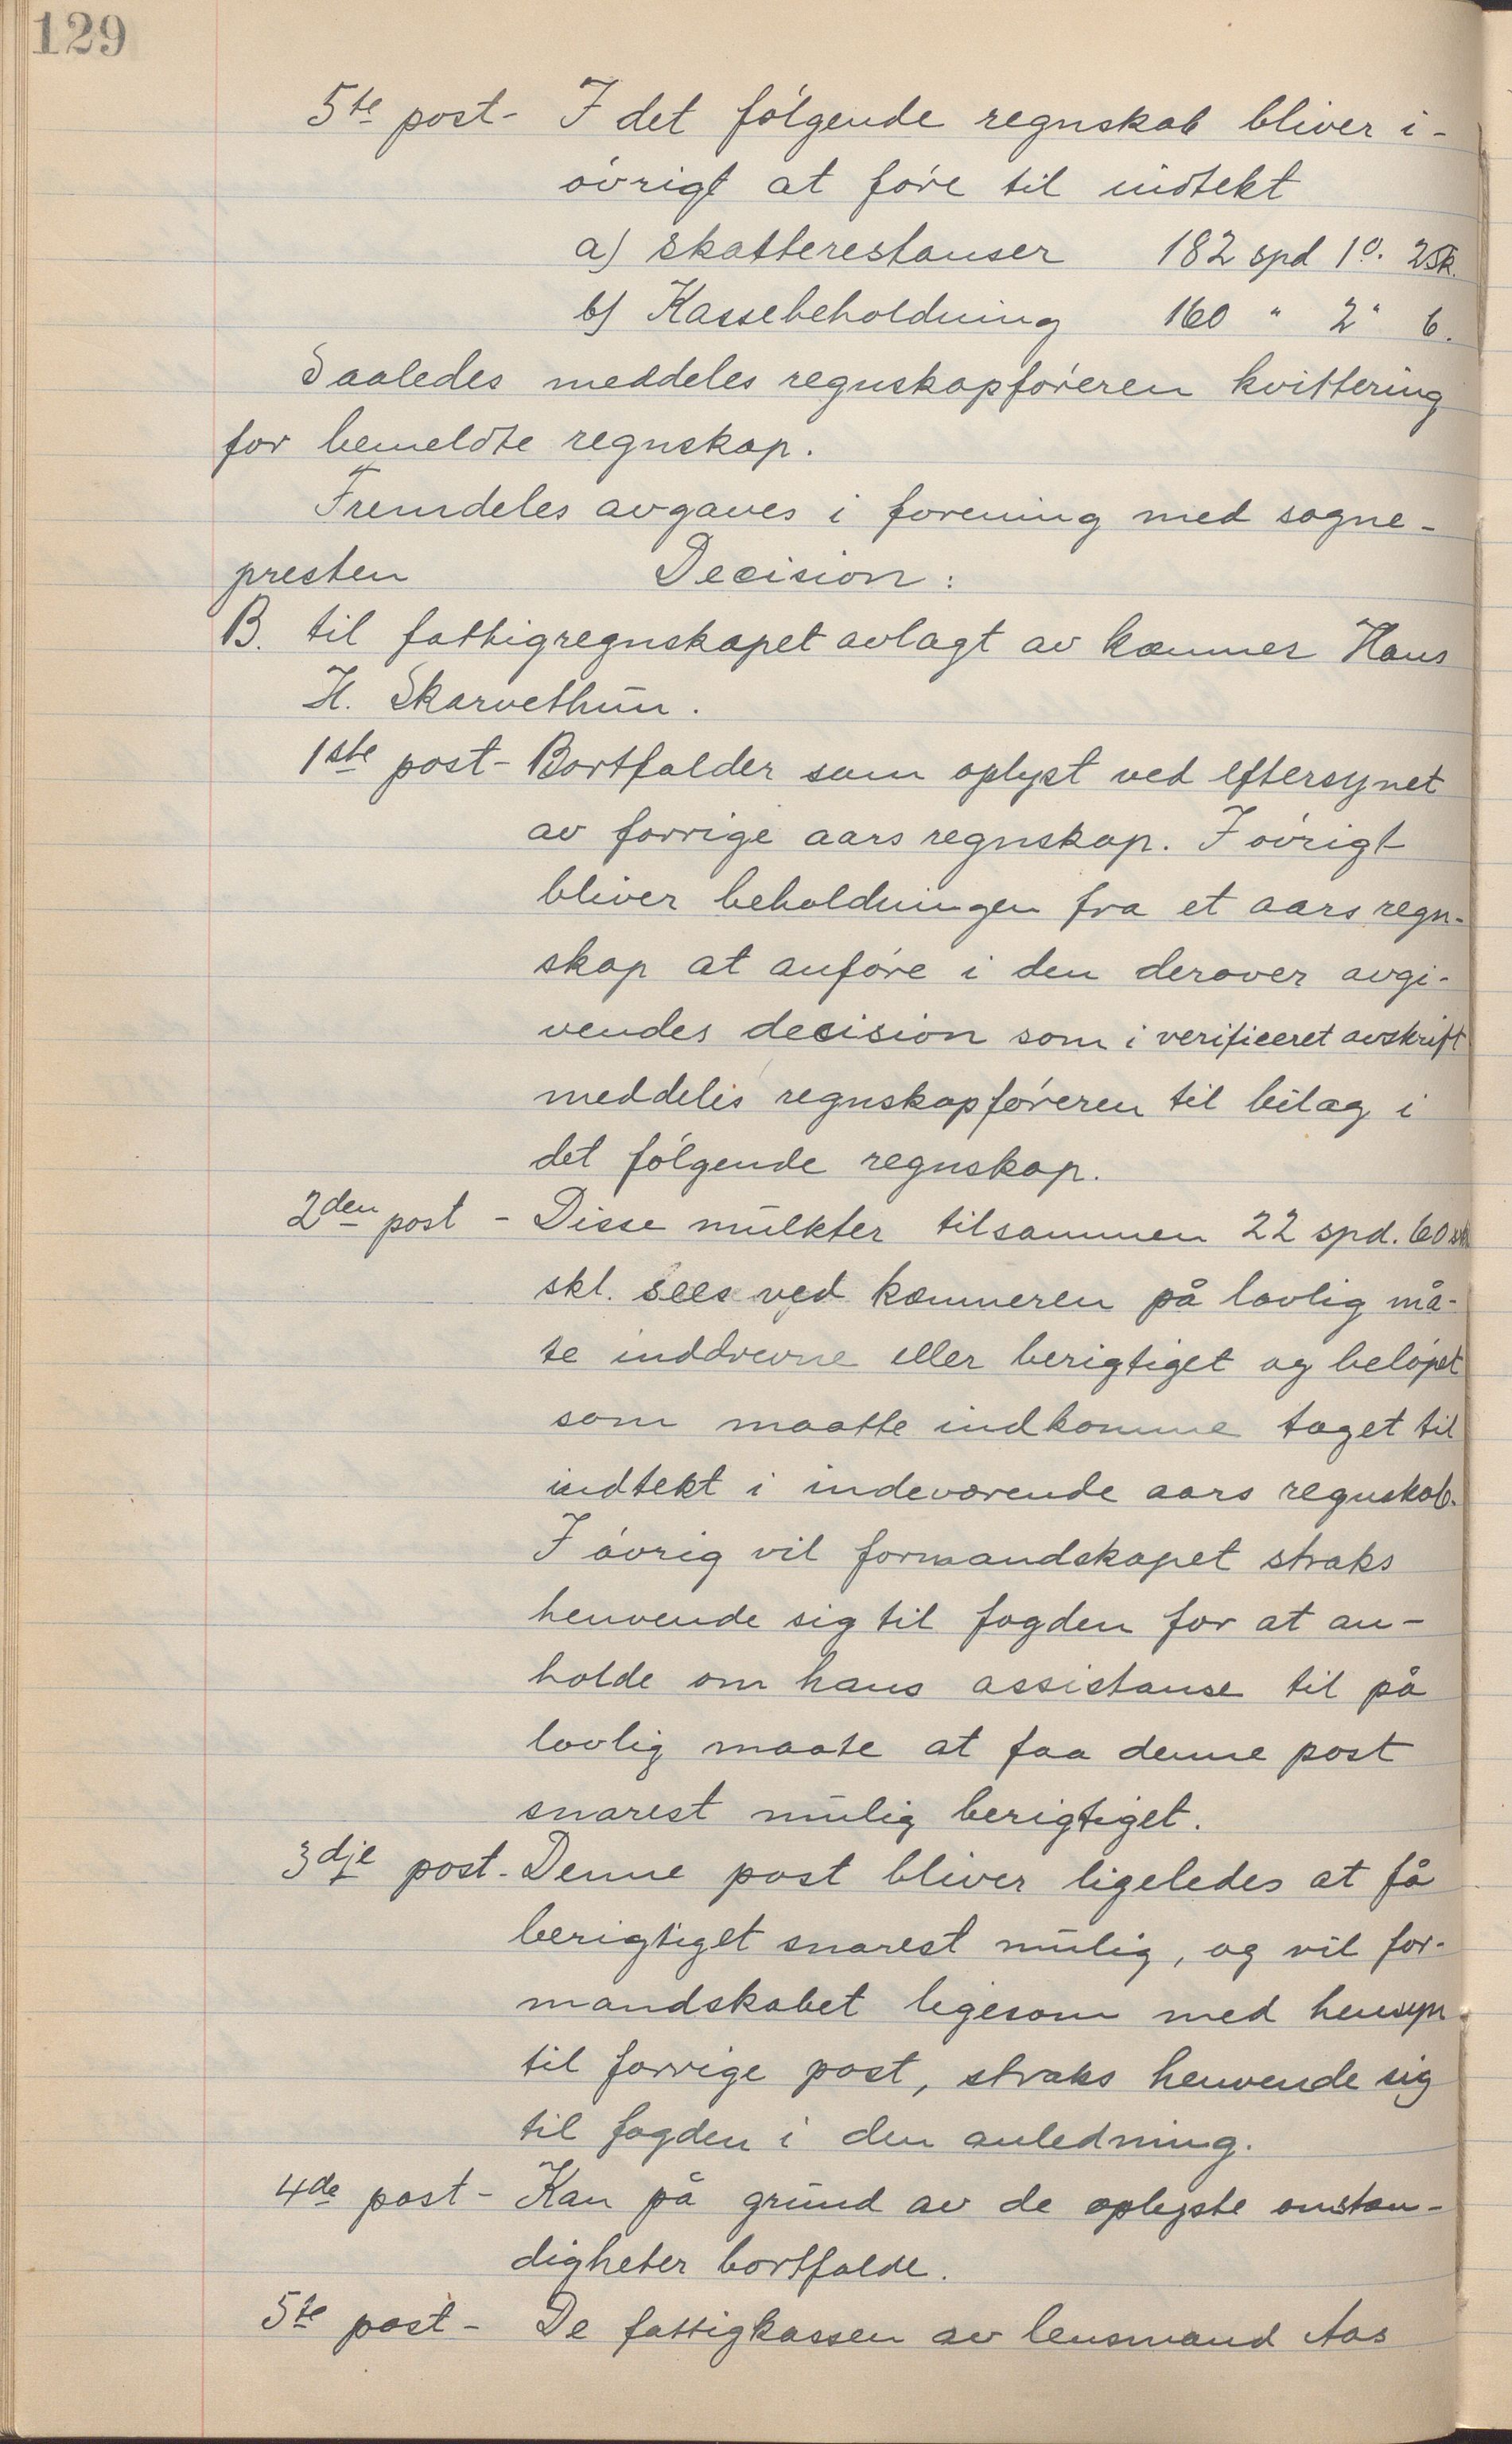 129
5te post- I det følgende regnskab bliver i-
øvrigt at føre til indtekt
a) skatterestanser 182 spd 1o. 2sk.
b) Kassebeholdning 160 " 2 " 6.
Saaledes meddeles regnskapføreren kvittering
for bemeldte regnskap.
Fremdeles avgaves i forening med sogne-
presten Decision:
B. til fattigregnskapet avlagt av kæmner Hans
H. Skarvethun.
1ste post- Bortfalder som oplyst ved eftersynet
av forrige aars regnskap. I øvrigt
bliver beholdningen fra et aars regn-
skap at anføre i den derover avgi-
vendes decision som i verificeret avskrift
meddeles regnskapføreren til bilag i
det følgende regnskap.
2den post - Disse mulkter tilsammen 22 spd. 60
skl. sees ved kæmneren på lovlig må-
te inddrevne eller berigtiget og beløpet
som maatte indkomme taget til
indtekt i indeværende aars regnskab.
I øvrig vil formandskapet straks
henvende sig til fogden for at an-
holde om hans assistanse til på
lovlig maate at faa denne post
snarest mulig berigtiget.
3dje post- Denne post bliver ligeledes at få
berigtiget snarest mulig, og vil for-
mandskabet ligesom med hensyn
til forrige post, straks henvende sig
til fogden i den anledning.
4de post- Kan på grund av de oplyste omstæn-
digheter bortfalde.
5te post- De fattigkassen av lensmand Aas